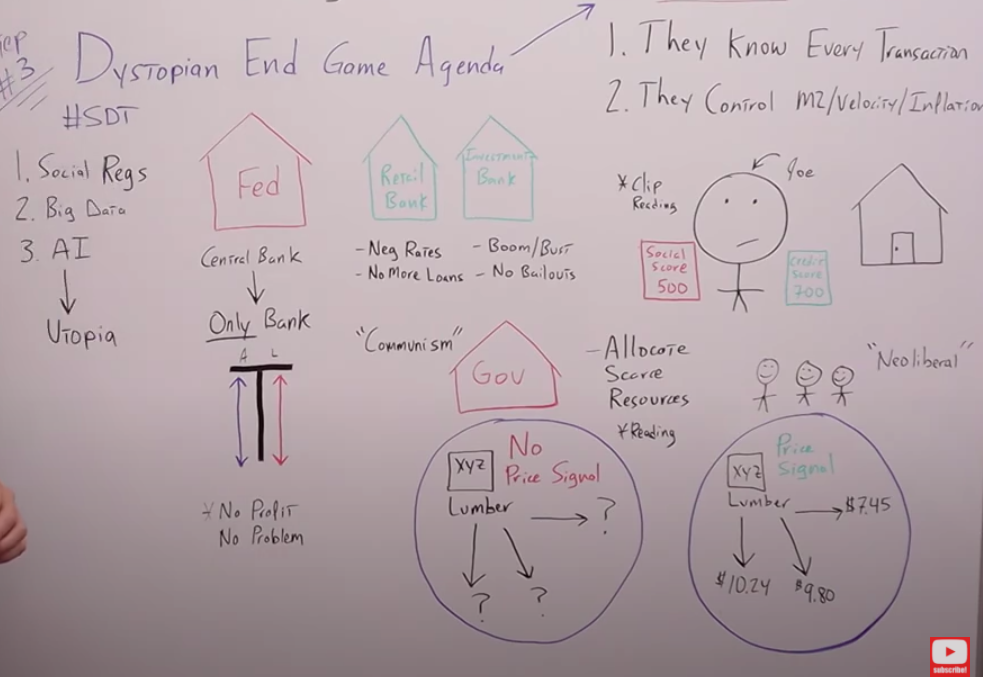 #3
Dystopian End Game Agenda
#SDT
1. They Know Every Transaction
2. They Control M2/Velocity/Inflation
1. Social Regs
2. Big Data
3. AI
Utopia
Fed
Central Bank
Only Bank
A L
* No Profit
No Problem
Retail
Bank
- Neg Rates
- No More Loans
Investment
Bank
- Boom/Bust
- No Bailouts
"Communism"
Gov
- Allocate
Scarce
Resources
* Reading
* Clip
Reading
Joe
Social
Score
500
Credit
Score
700
"Neoliberal"
No
Price Signal
XYZ
Lumber
?
?
?
Price
Signal
XYZ
Lumber
$7.45
$10.24
$9.80
subscribe!